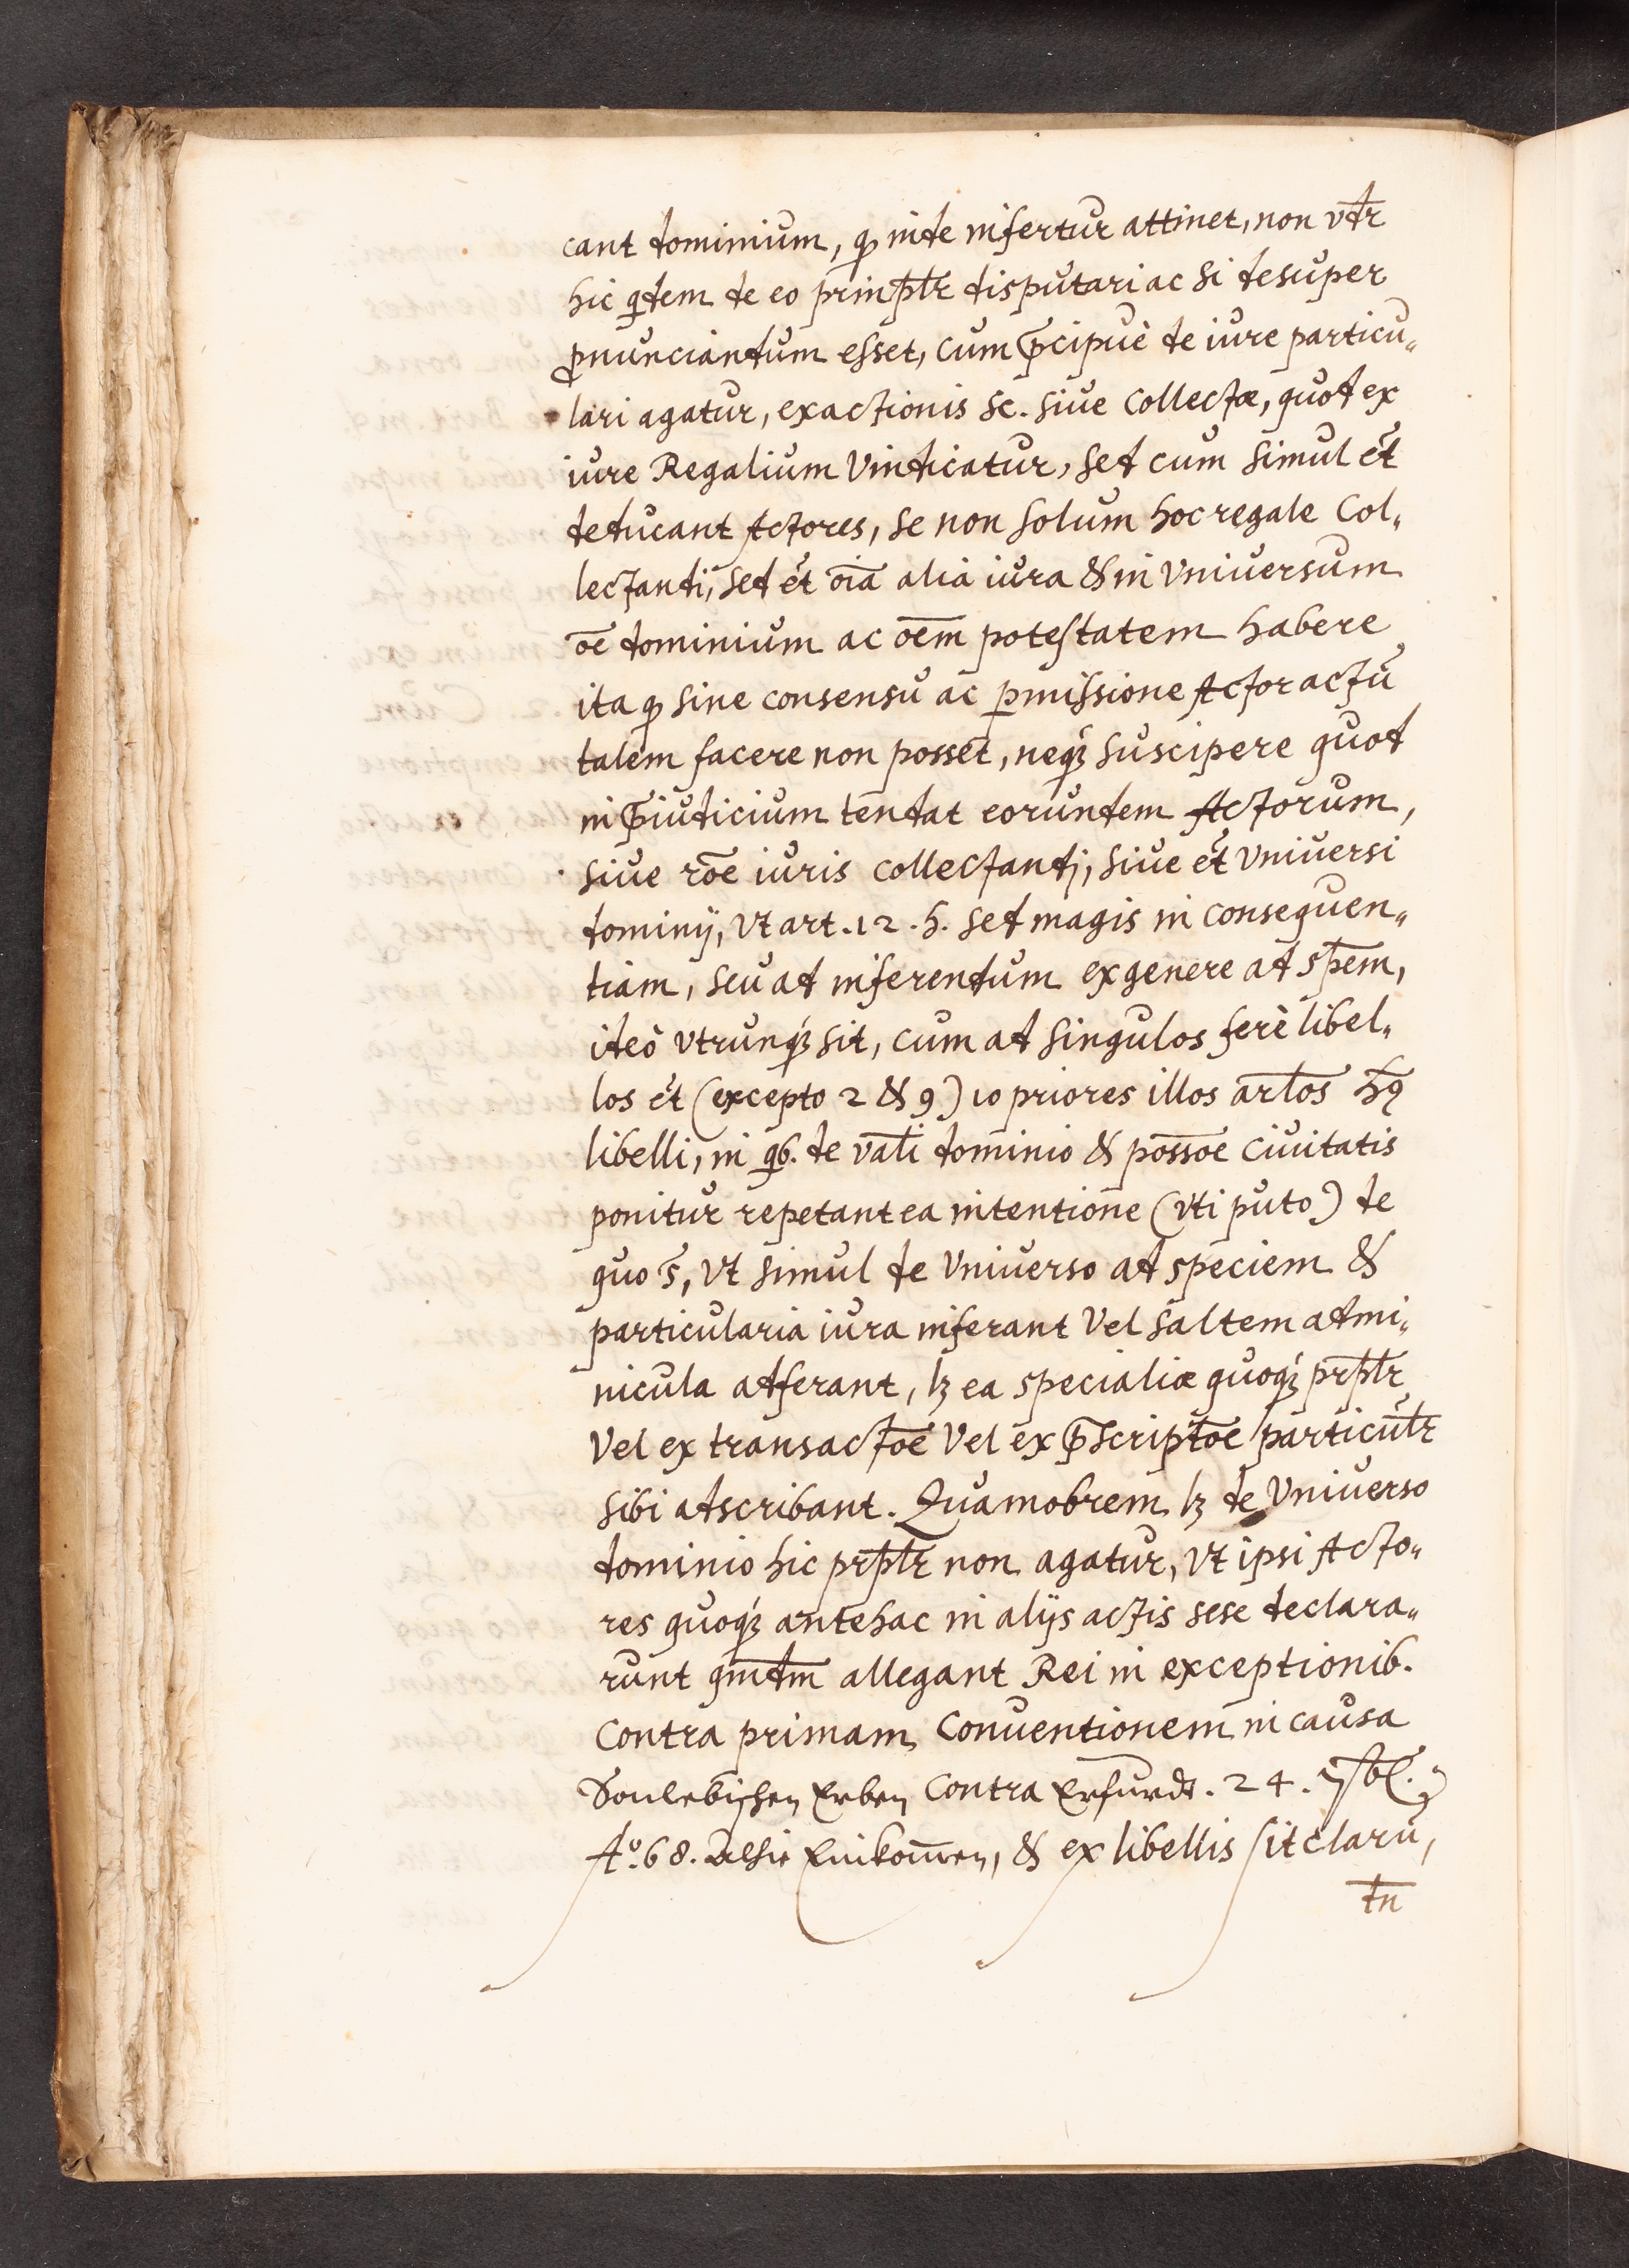 cant dominium, q̨ inde infertur attinet, non vdr̄
hic qdem de eo prinp̄lr disputari ac si desuper
pnunciandum esset, cum p̄cipuè de iure particu„
lari agatur, exactionis sc. siue collectæ, quod ex
iure Regalium vindicatur, sed cum simul et̄
deducant Actores, se non solum hoc regale Col„
lectandi, sed et̄ oīa alia iura & in vniuersum
oē dominium ac oēm potestatem habere
ita q̨ sine consensu ac pmissione Actor actū
talem facere non posset, neqꝫ suscipere quod
in p̄iudicium tendat eorundem Actorum,
siue rōe iuris collectandj, siue et̄ vniuersi
dominij, vt art. 12. h. sed magis in consequen„
tiam, seu ad inferendum ex genere ad sp̄em,
ideò vtrunqꝫ sit, cum ad singulos ferè libel„
los et̄ (excepto 2 & 9) 10 priores illos artl̄os h̄ꝰ
libelli, in qb. de vāli dominio & pōssoe ciuitatis
ponitur repetant ea intentione (vti puto) de
quo s̄, vt simul de vniuerso ad speciem &
particularia iura inferant vel saltem admi„
nicula adferant, lꝫ ea specialiæ quoqꝫ prp̄lr
vel ex transactōe vel ex p̄scriptōe particūlr
sibi adscribant. Quamobrem lꝫ de vniuerso
dominio hic prp̄lr non agatur, vt ipsi Acto„
res quoqꝫ antehac in alijs actis sese declara„
runt qm̄dm allegant Rei in exceptionib.
contra primam Conuentionem in causa
Erben contra Erfurdt. 24.
Aº. 68. Einkom̄en, & ex libellis sit clarū,
tn̄